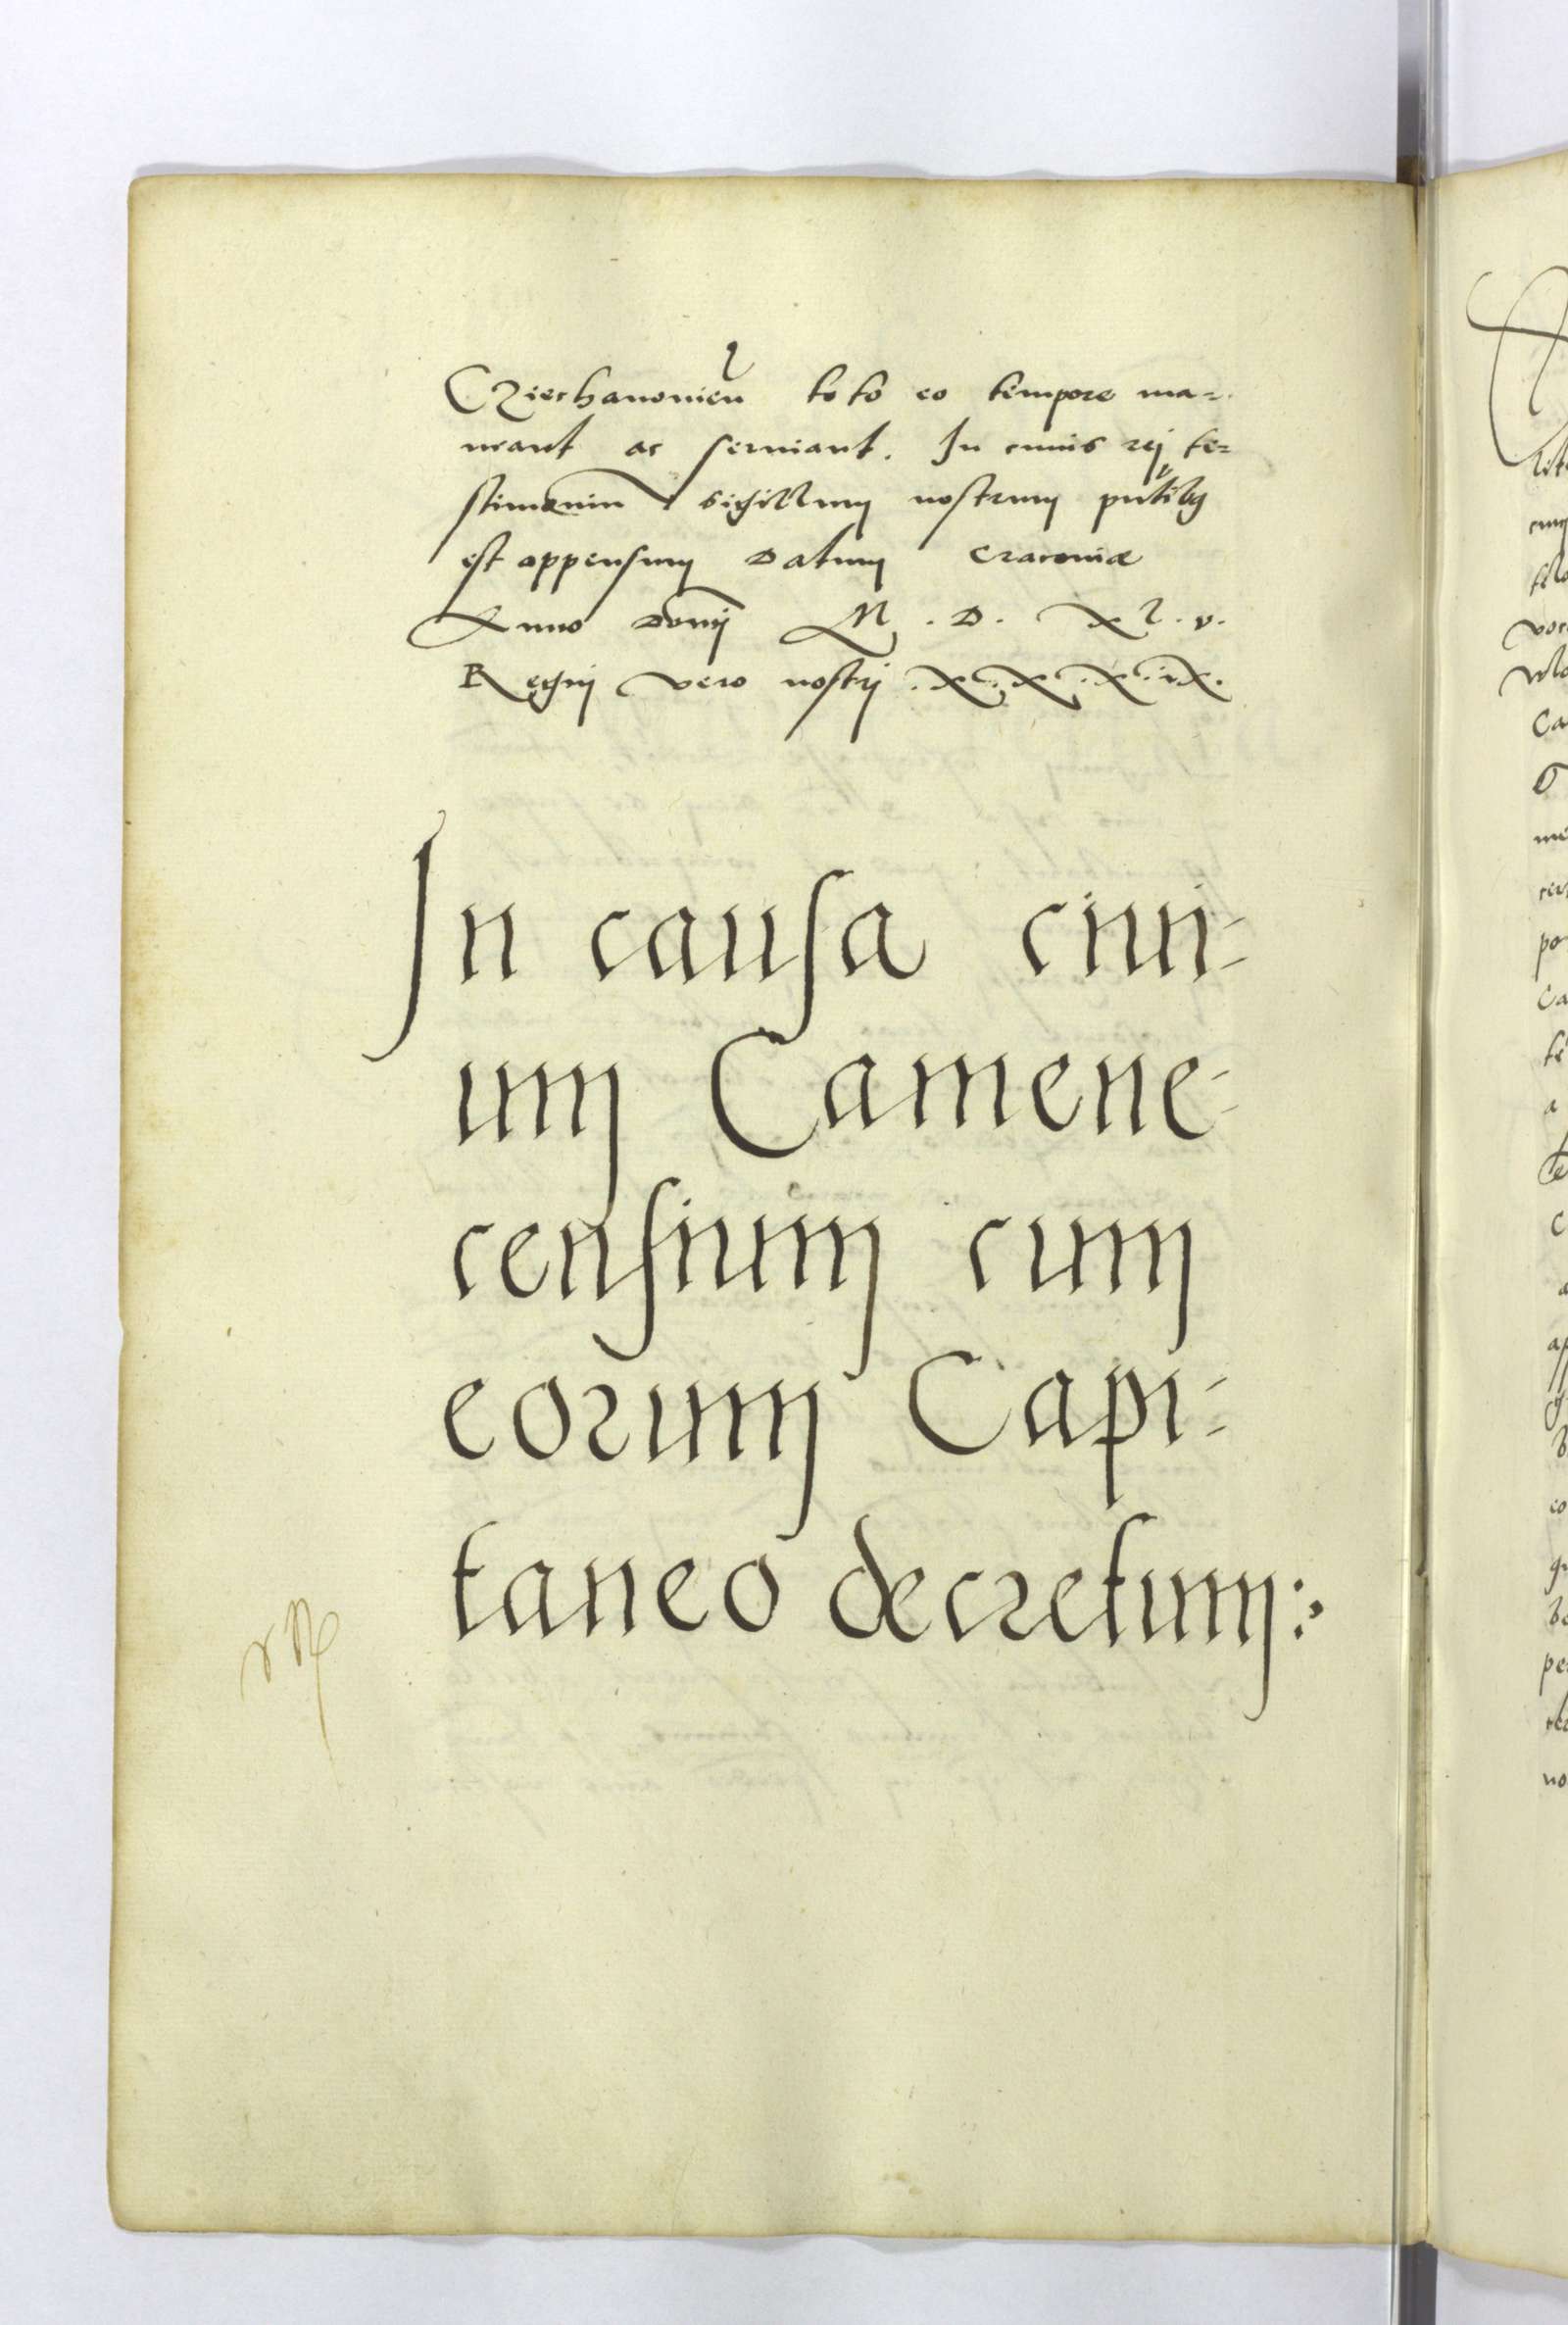 Cziechanonien toto eo tempore ma=
neant ac seruiant. In cuius rej te=
stimonium sigillum nostrum pntibus
est appensum Datum Cracouiæ
Anno Domj M . D . xl . v .
Regnj vero nostrj . x . x . x . ix .
In causa ciui=
um Camene=
censium cum
eorum Capi=
taneo decretum :